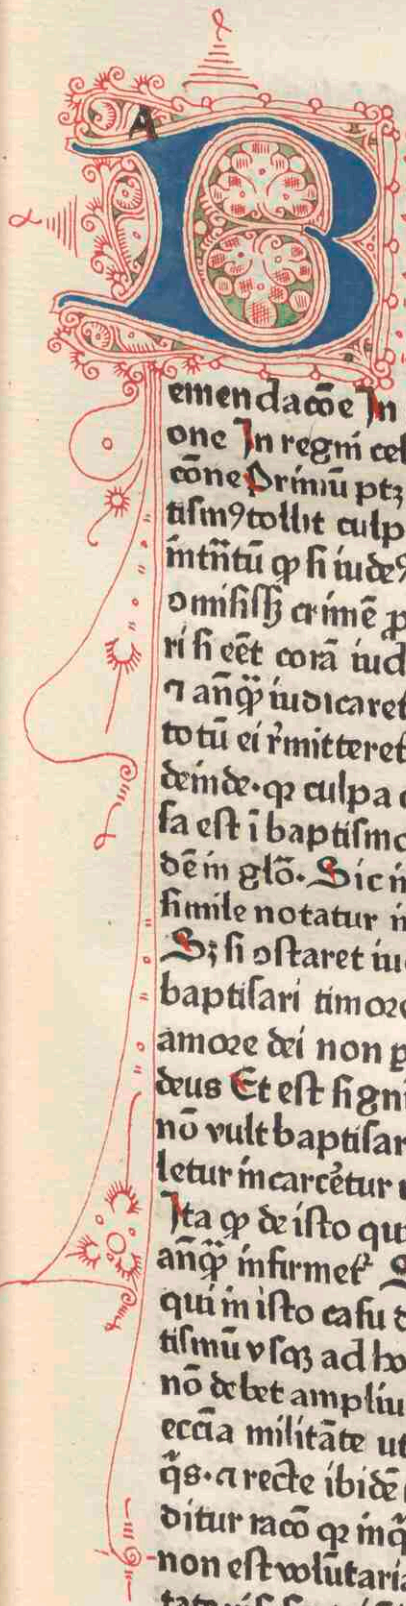 A
B
emendacōe In
one In regnī cel
cōne Primū ptꝫ
tismꝰ tollit culp
intn̄tū qꝫ si iudeꝰ
omisissꝫ crimē p
ri si eēt corā iud
ꝛ anq̄ꝫ iudicaret
totū ei rͥmitteret
deinde·qꝛ culpa
sa est ī baptismo
dēm glō· Sic in
simile notatur in
Sꝫ si ꝯstaret iu
baptisari timore
amore dei non p
deus Et est signi
nō vult baptisar
letur incarcētur
Ita ꝙ de isto qu
anq̄ꝫ infirmetᷣ S
qui in isto casu d
tismū vsqꝫ ad ho
nō debet ampliu
eccīa militāte ut
q̄s·ꝛ recte ibidē
ditur racō qꝛ inq̄
non est volūtaria